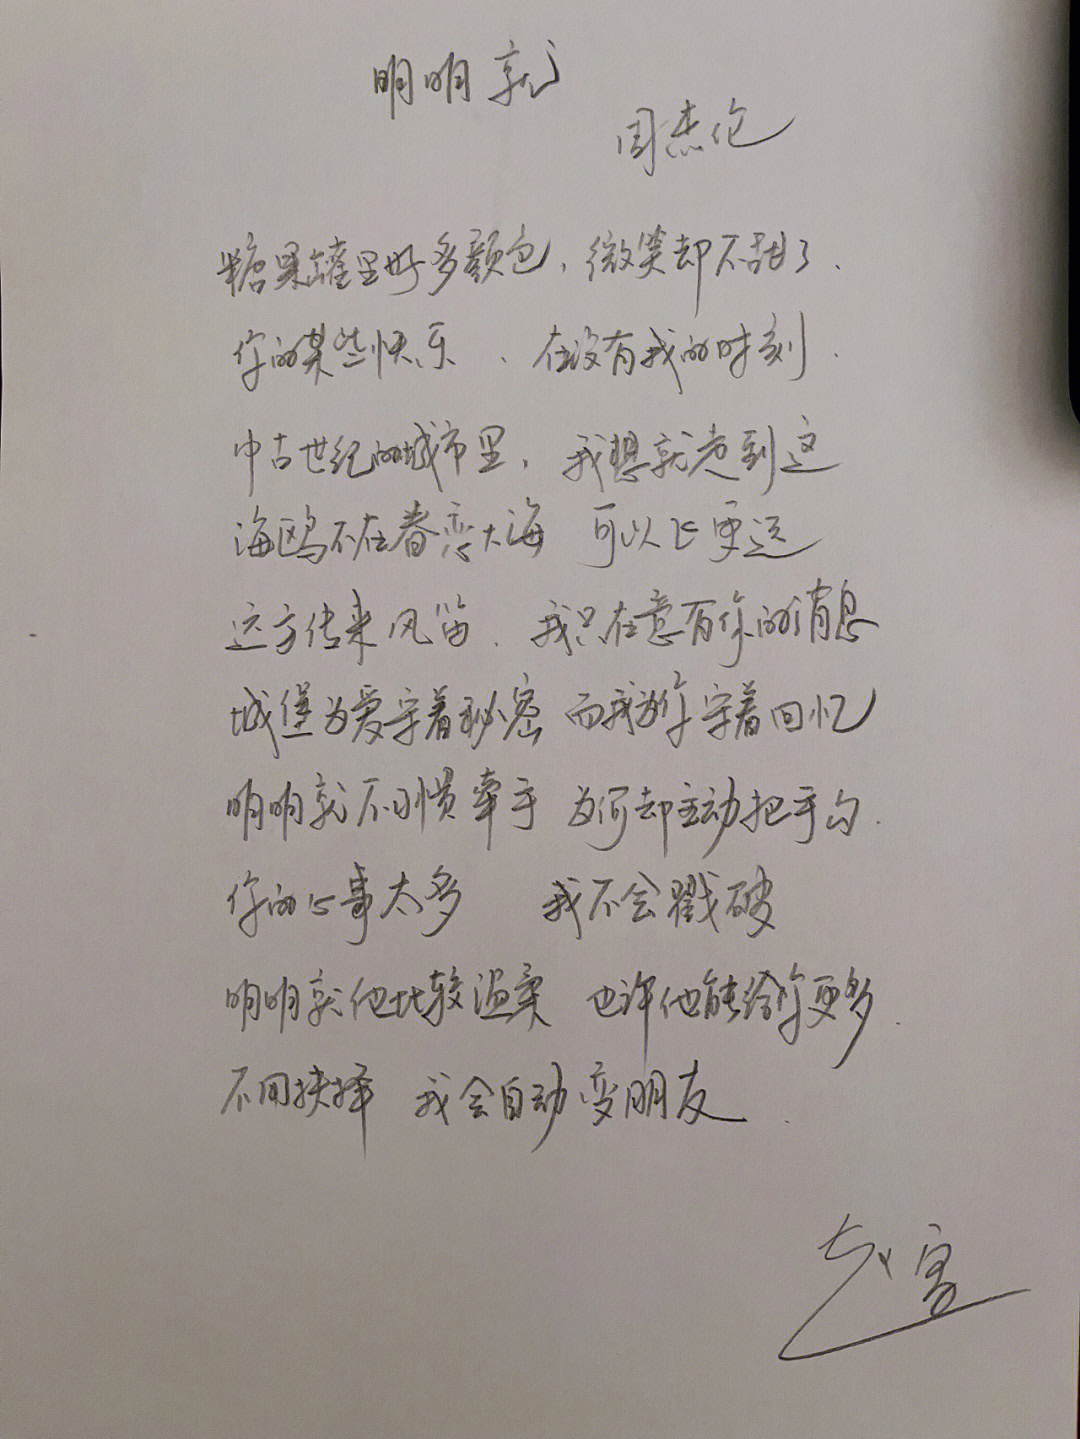 明明就
周杰伦
糖果罐里好多颜色，微笑却不甜了.
你的某些快乐、在没有我的时刻.
中古世纪的城市里，我想就走到这
海鸥不在眷恋大海 可以飞更远
远方传来风笛、我只在意有你的消息
城堡为爱守着秘密 而我为你守着回忆
明明就不习惯牵手 为何却主动把手勾.
你的心事太多 我不会戳破
明明就他比较温柔 也许他能给你更多.
不用抉择 我会自动变朋友.